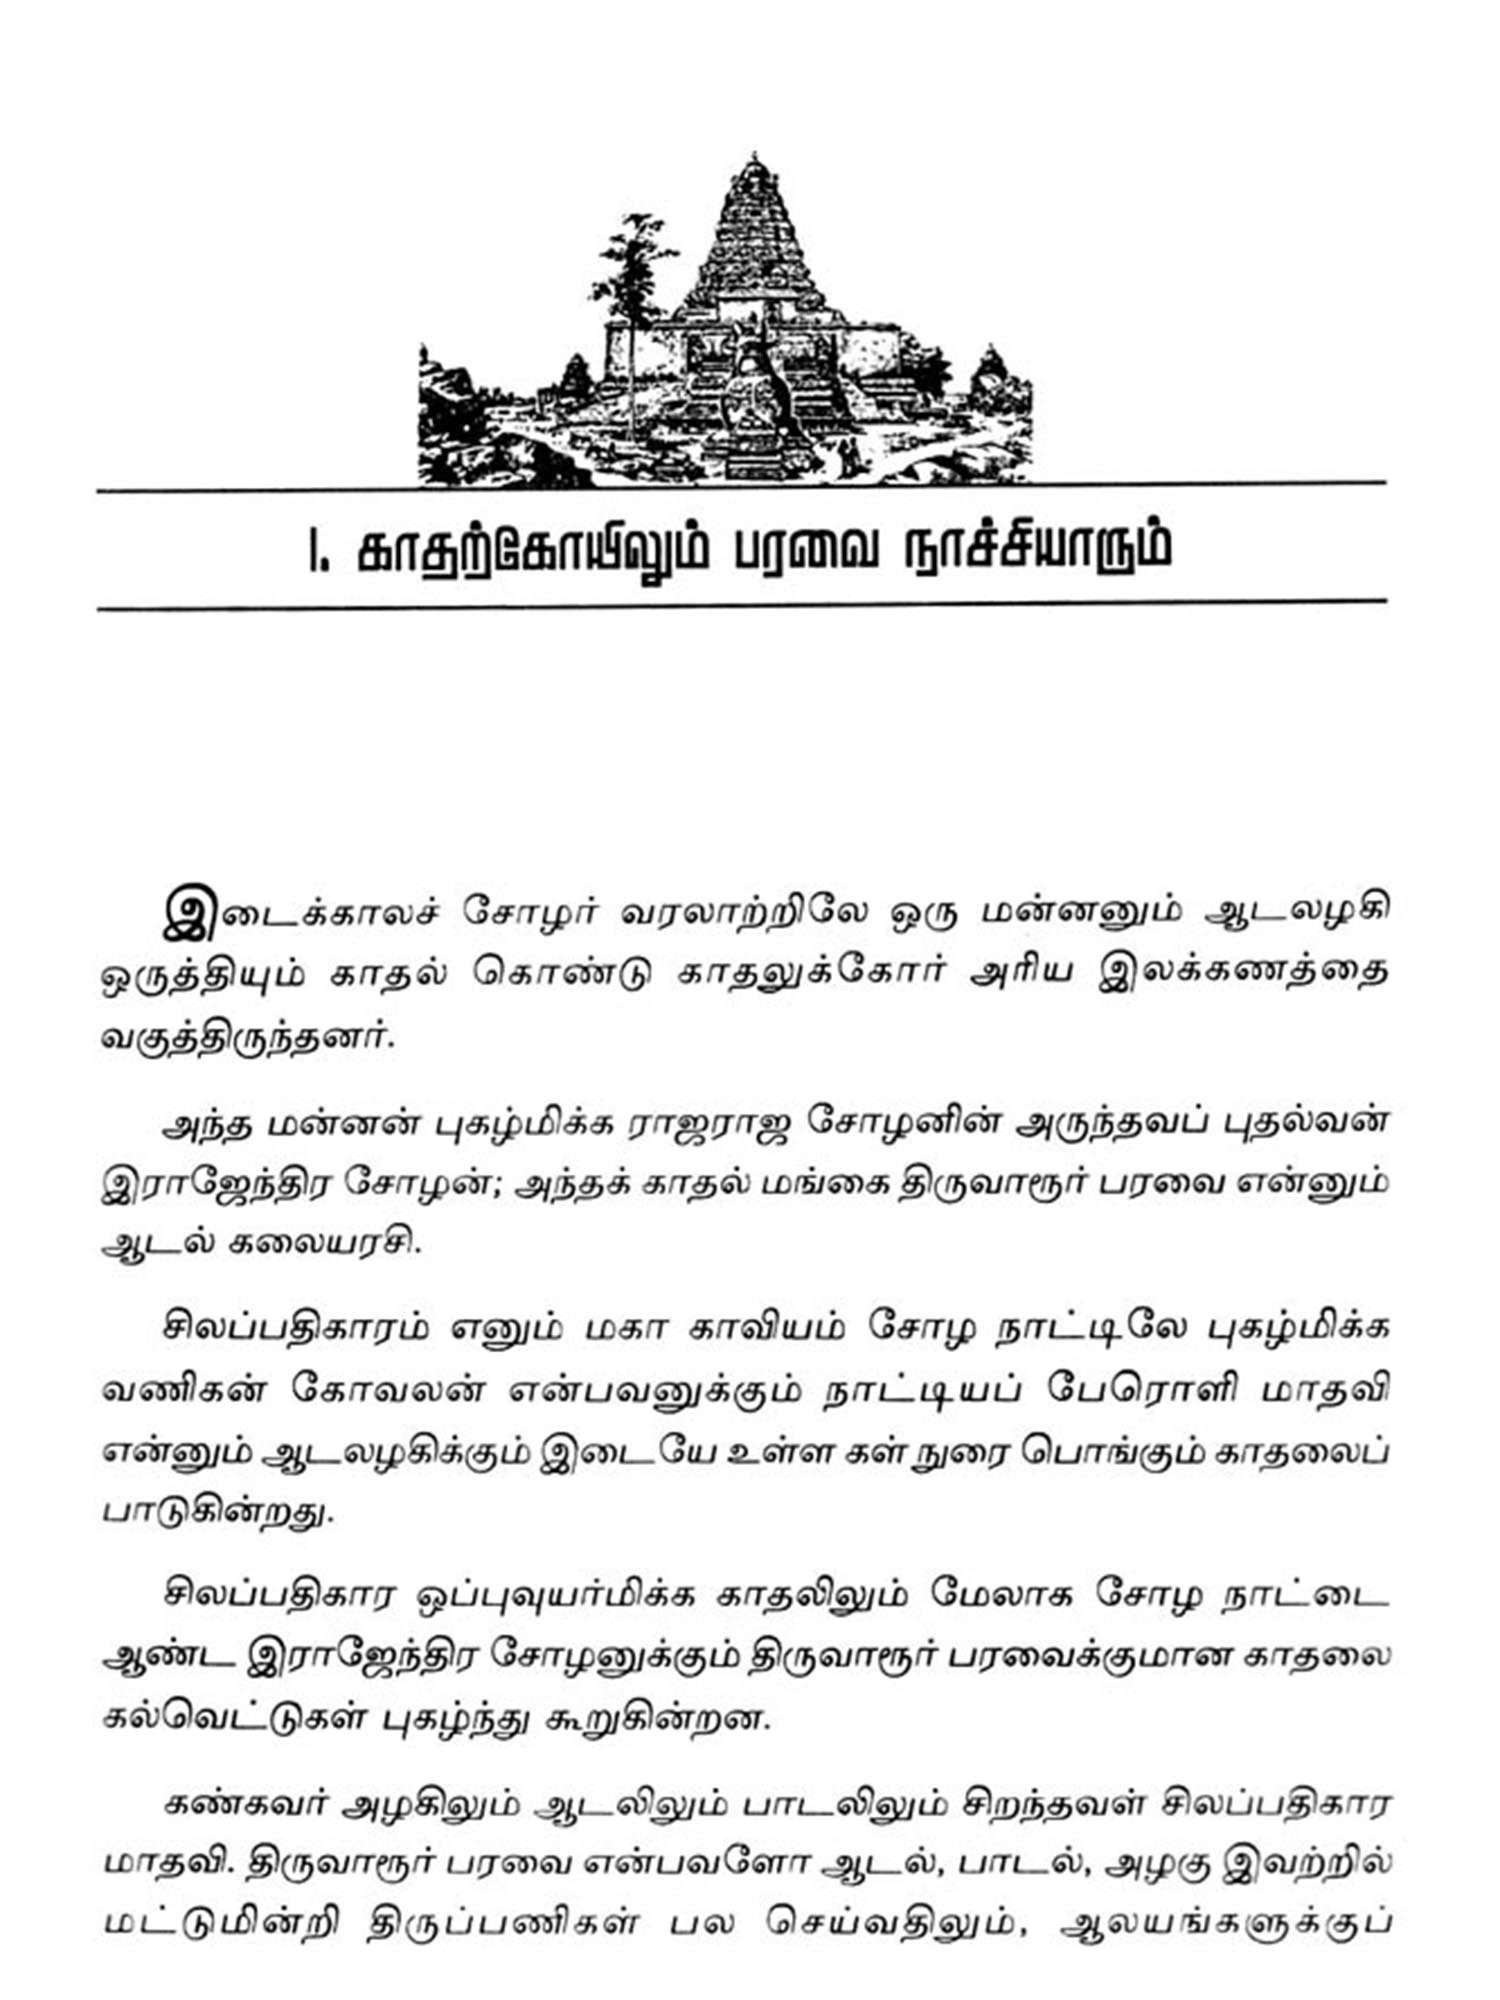 1. காதற்கோயிலும் பரவை நாச்சியாரும்
இடைக்காலச் சோழர் வரலாற்றிலே ஒரு மன்னனும் ஆடலழகி
ஒருத்தியும் காதல் கொண்டு காதலுக்கோர் அரிய இலக்கணத்தை
வகுத்திருந்தனர்.
அந்த மன்னன் புகழ்மிக்க ராஜராஜ சோழனின் அருந்தவப் புதல்வன்
இராஜேந்திர சோழன்; அந்தக் காதல் மங்கை திருவாரூர் பரவை என்னும்
ஆடல் கலையரசி.
சிலப்பதிகாரம் எனும் மகா காவியம் சோழ நாட்டிலே புகழ்மிக்க
வணிகன் கோவலன் என்பவனுக்கும் நாட்டியப் பேரொளி மாதவி
என்னும் ஆடலழகிக்கும் இடையே உள்ள கள் நுரை பொங்கும் காதலைப்
பாடுகின்றது.
சிலப்பதிகார ஒப்புவுயர்மிக்க காதலிலும் மேலாக சோழ நாட்டை
ஆண்ட இராஜேந்திர சோழனுக்கும் திருவாரூர் பரவைக்குமான காதலை
கல்வெட்டுகள் புகழ்ந்து கூறுகின்றன.
கண்கவர் அழகிலும் ஆடலிலும் பாடலிலும் சிறந்தவள் சிலப்பதிகார
மாதவி. திருவாரூர் பரவை என்பவளோ ஆடல், பாடல், அழகு இவற்றில்
மட்டுமின்றி திருப்பணிகள் பல செய்வதிலும், ஆலயங்களுக்குப்